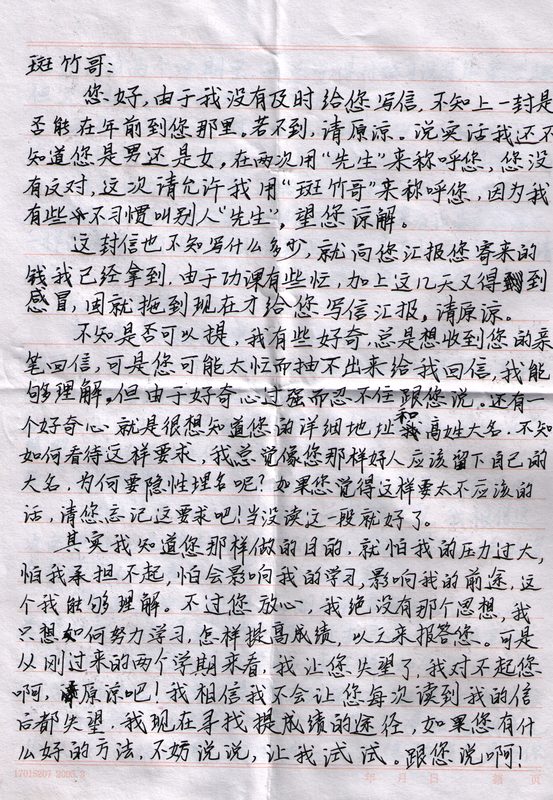 斑竹哥：
您好，由于我没有及时给您写信，不知上一封是
否能在年前到您那里。若不到，请原谅。说实话我还不
知道您是男还是女，在两次用“先生”来称呼您，您没
有反对，这次请允许我用“斑竹哥”来称呼您，因为我
有些不习惯叫别人“先生”，望您谅解。
这封信也不知写什么多少，就向您汇报您寄来的
钱我已经拿到，由于功课有些忙，加上这几天又得到
感冒，因就拖到现在才给您写信汇报，请原谅。
不知是否可以提，我有些好奇，总是想收到您的亲
笔回信，可是您可能太忙而抽不出来给我回信，我能
够理解。但由于好奇心过强而忍不住跟您说。还有一
个好奇心就是很想知道您的详细地址和高姓大名，不知
如何看待这样要求，我总觉像您那样好人应该留下自己的
大名，为何要隐性埋名呢？如果您觉得这样要太不应该的
话，请您忘记这要求吧！当没读这一段就好了。
其实我知道您那样做的目的，就怕我的压力过大，
怕我承担不起，怕会影响我的学习，影响我的前途，这
个我能够理解。不过您放心，我绝没有那个思想，我
只想如何努力学习，怎样提高成绩，以之来报答您。可是
从刚过来的两个学期来看，我让您失望了，我对不起您
啊，原谅吧！我相信我不会让您每次读到我的信
后都失望，我现在寻找提成绩的途径，如果您有什
么好的方法，不妨说说，让我试试。跟您说啊！
17015207 2005.3 年 月 日 第 页